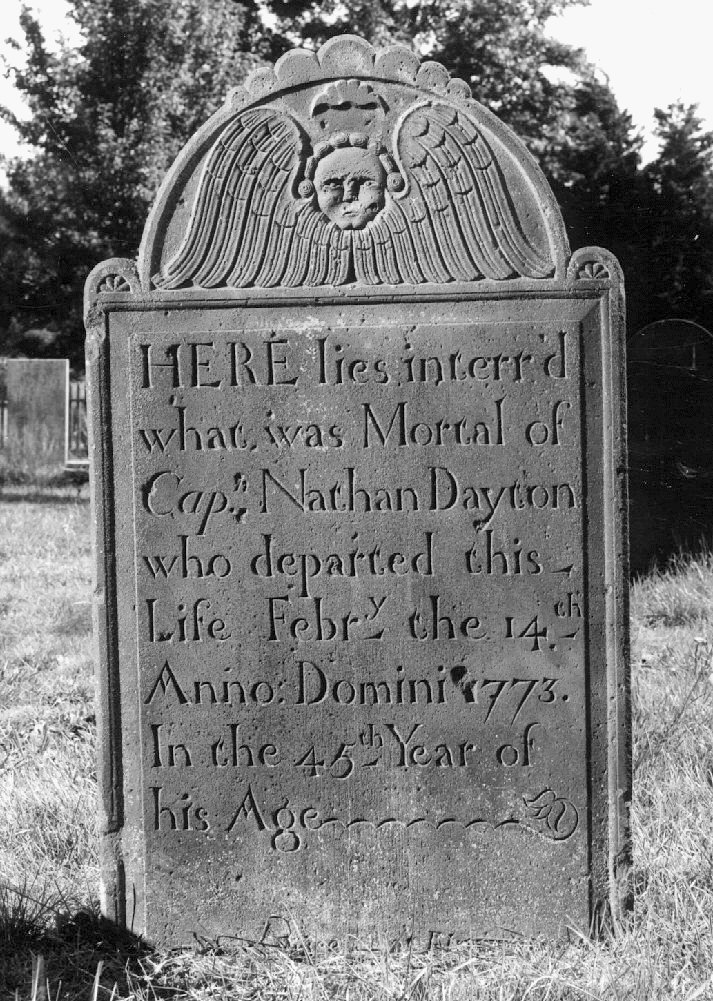 HERE lies interr'd
what was Mortal of
Cap.ᵗ Nathan Dayton
who departed this
Life Febrʸ the 14.ᵗʰ
Anno: Domini 1773.
In the 45ᵗʰ Year of
his Age